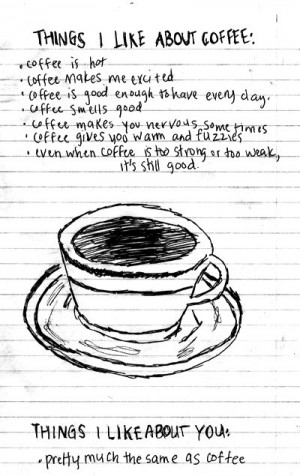 THINGS I LIKE ABOUT COFFEE:
• coffee is hot
• coffee makes me excited
• coffee is good enough to have every day.
• coffee smells good
• coffee makes you nervous sometimes
• coffee gives you warm and fuzzies
• even when coffee is too strong or too weak,
it's still good.
THINGS I LIKE ABOUT YOU:
• pretty much the same as coffee